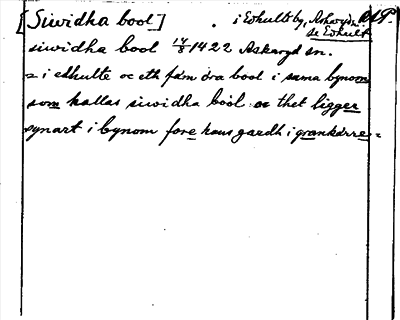 [Siwidha bool] . i Edhultsby, Askeryd sn. RAP
se Edhult
siwidha bool 17/8 1422 Askeryd sn.
= i edhulte oc eth fæm øra bool i sama bynom
som kallas siwidha bool oc thet ligger
synart i bynom fore hans gardh i grankærre =